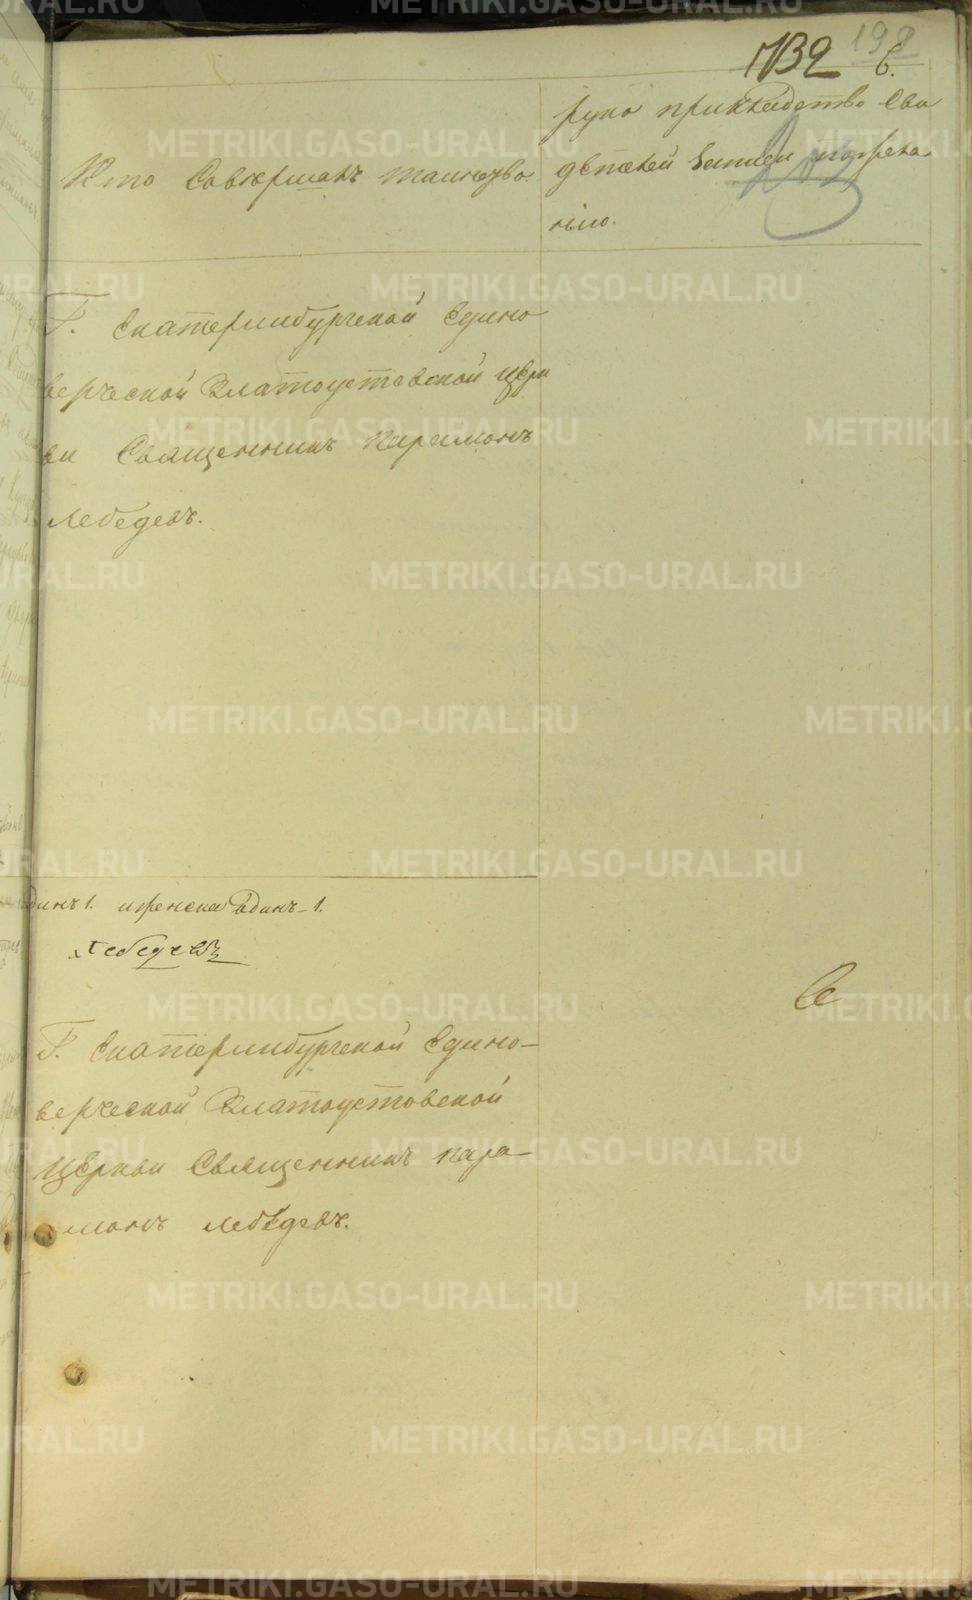 1732
198
Кто Совершалъ таинство.
руко прикладство Сви
детелей Записи пожела
нію.
Г. Екатеринбургской Едино
верческой Златоустовской Церк
ви Священникъ Парамонъ
Лебедевъ.
динъ 1. и женска Единъ - 1.
Лебедевъ
Г. Екатеринбургской Едино-
верческой Златоустовской
Церкви Священникъ Пара-
монъ Лебедевъ.
METRIKI.GASO-URAL.RU